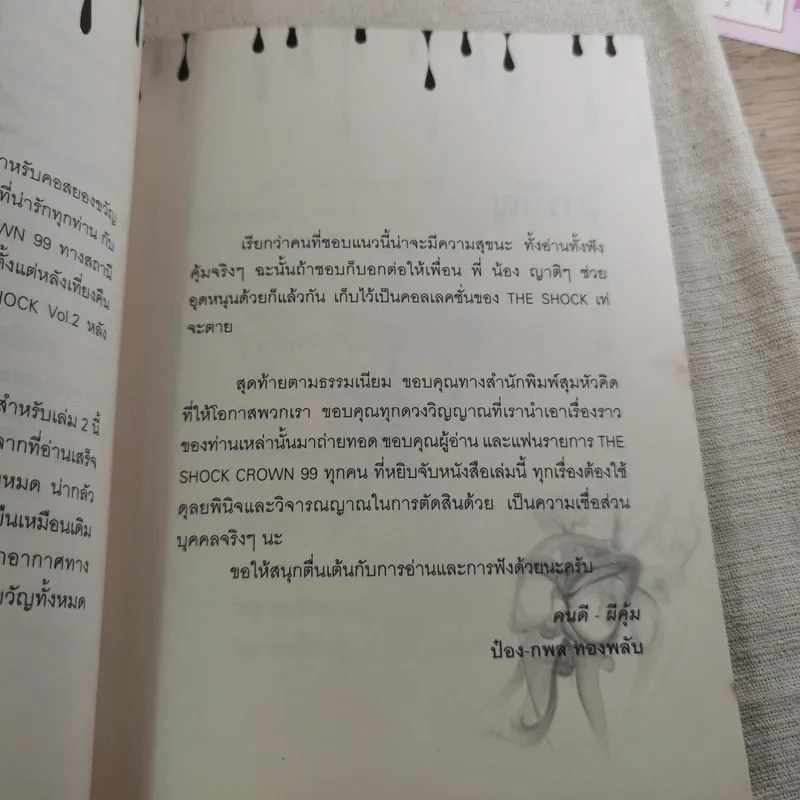 าหรับคอสยองขวัญ
ที่น่ารักทุกท่าน กับ
WN 99 ทางสถานี
ตั้งแต่หลังเที่ยงคืน
HOCK Vol.2 หลัง
สำหรับเล่ม 2 นี้
จากที่อ่านเสร็จ
หมด น่ากลัว
ป็นเหมือนเดิม
อากาศทาง
ขวัญทั้งหมด
เรียกว่าคนที่ชอบแนวนี้น่าจะมีความสุขนะ ทั้งอ่านทั้งฟัง
คุ้มจริงๆ ฉะนั้นถ้าชอบก็บอกต่อให้เพื่อน พี่ น้อง ญาติๆ ช่วย
อุดหนุนด้วยก็แล้วกัน เก็บไว้เป็นคอลเลคชั่นของ THE SHOCK เท่
จะตาย
สุดท้ายตามธรรมเนียม ขอบคุณทางสำนักพิมพ์สุมหัวคิด
ที่ให้โอกาสพวกเรา ขอบคุณทุกดวงวิญญาณที่เรานำเอาเรื่องราว
ของท่านเหล่านั้นมาถ่ายทอด ขอบคุณผู้อ่าน และแฟนรายการ THE
SHOCK CROWN 99 ทุกคน ที่หยิบจับหนังสือเล่มนี้ ทุกเรื่องต้องใช้
ดุลยพินิจและวิจารณญาณในการตัดสินด้วย เป็นความเชื่อส่วน
บุคคลจริงๆ นะ
ขอให้สนุกตื่นเต้นกับการอ่านและการฟังด้วยนะครับ
คนดี - ผีคุ้ม
ป๋อง-กพล ทองพลับ